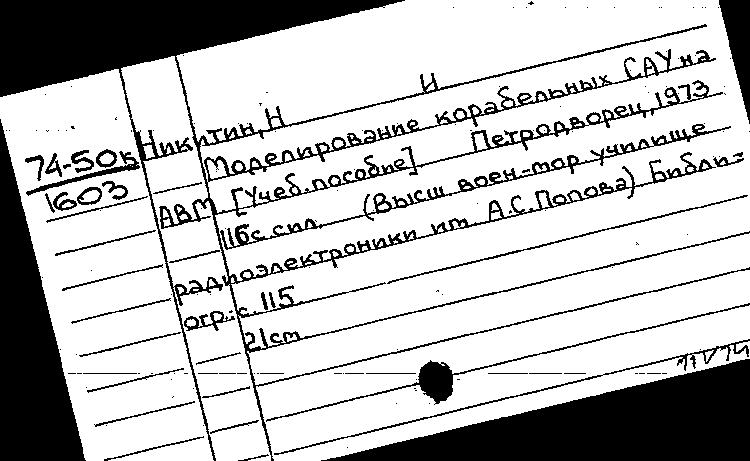 Никитин, Н И
74-50к
1603
Моделирование корабельных САУ на
АВМ [Учеб. пособие] Петродворец, 1973
116с. сил. (Высш воен.-мор училище
радиоэлектроники им А.С. Попова) Библи=
огр.: с. 115.
21cm
11 V 74